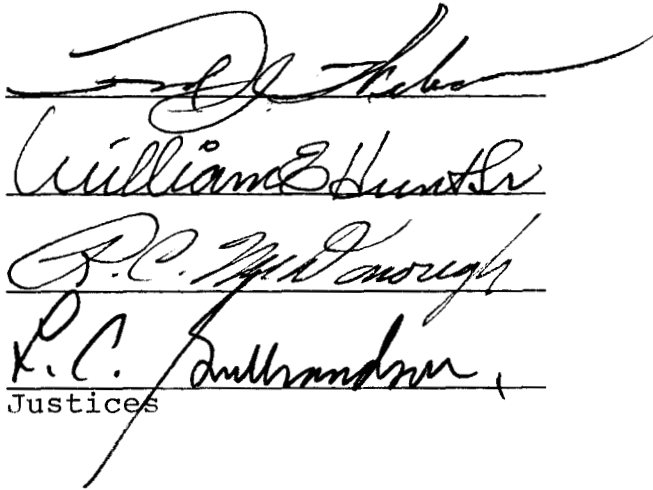 William E Hunt Sr
R.C. McDonough
L.C. Gulbrandson,
Justices